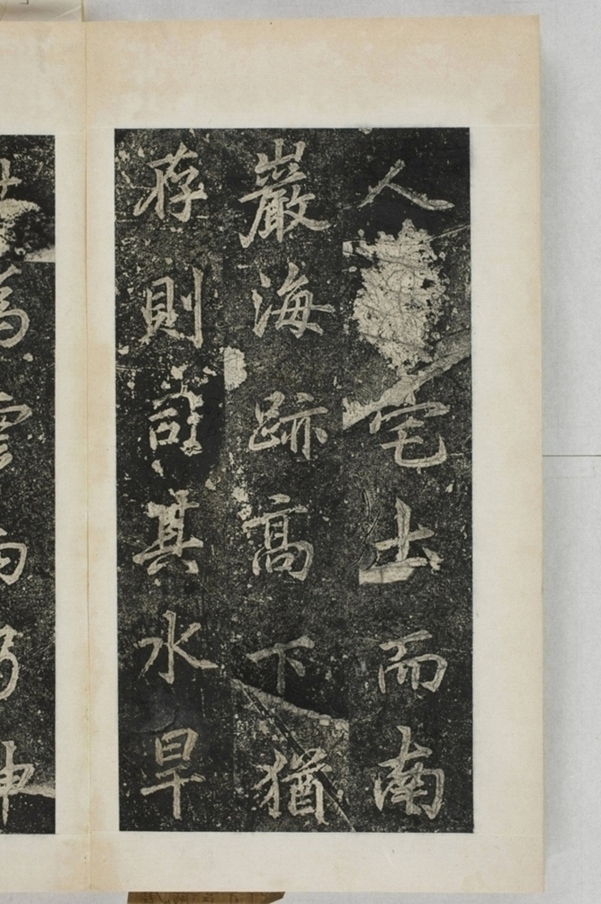 人宅土而南
巖海跡高下猶
存則其水旱